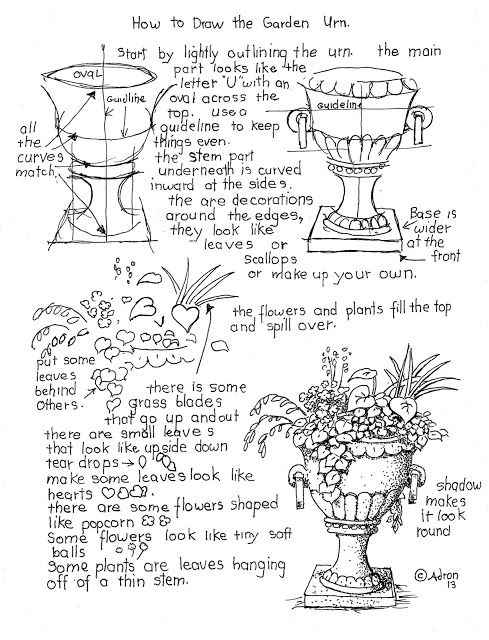 How to Draw the Garden Urn.
Start by lightly outlining the urn. the main
part looks like the
letter "U" with an
oval across the
top. use a
guideline to keep
things even.
the stem part
underneath is curved
inward at the sides.
the are decorations
around the edges,
they look like
leaves or
scallops
or make up your own.
OVAL
Guidline
all
the
curves
match.
Guideline
Base is
wider
at the
front
the flowers and plants fill the top
and spill over.
put some
leaves
behind
others.
there is some
grass blades
that go up and out
there are small leaves
that look like upside down
tear drops
make some leaves look like
hearts
there are some flowers shaped
like popcorn
Some flowers look like tiny soft
balls
Some plants are leaves hanging
off of a thin stem.
shadow
makes
it look
round
© Adron
13